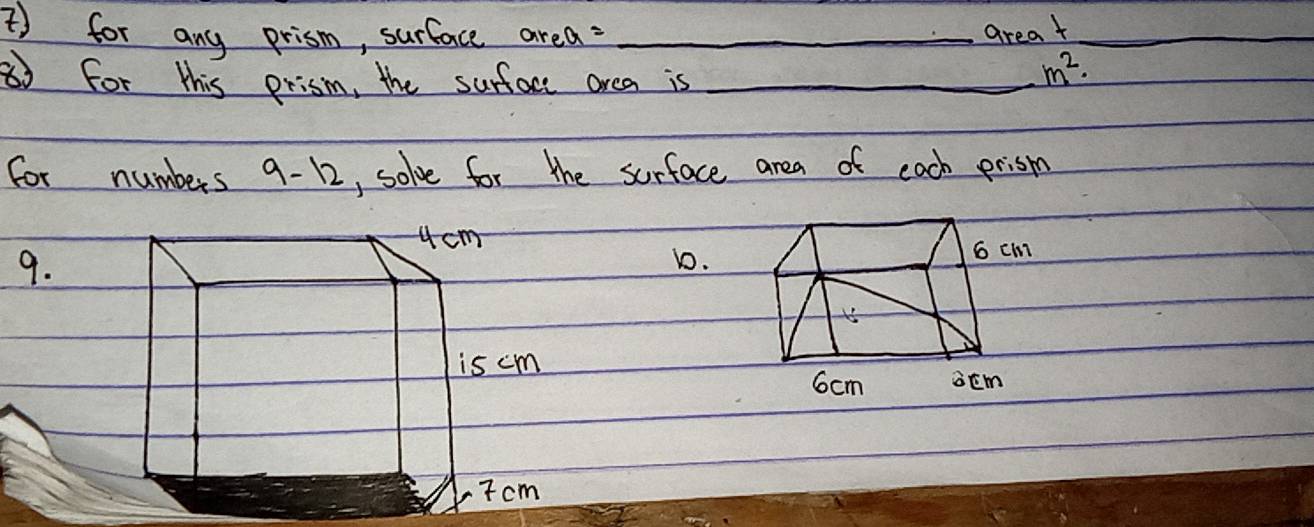 7) for any prism, surface area = ____________ area + ____________
8) For this prism, the surface area is ____________ m².
For numbers 9-12, solve for the surface area of each prism
9.
4cm
15 cm
7cm
10.
6 cm
6cm